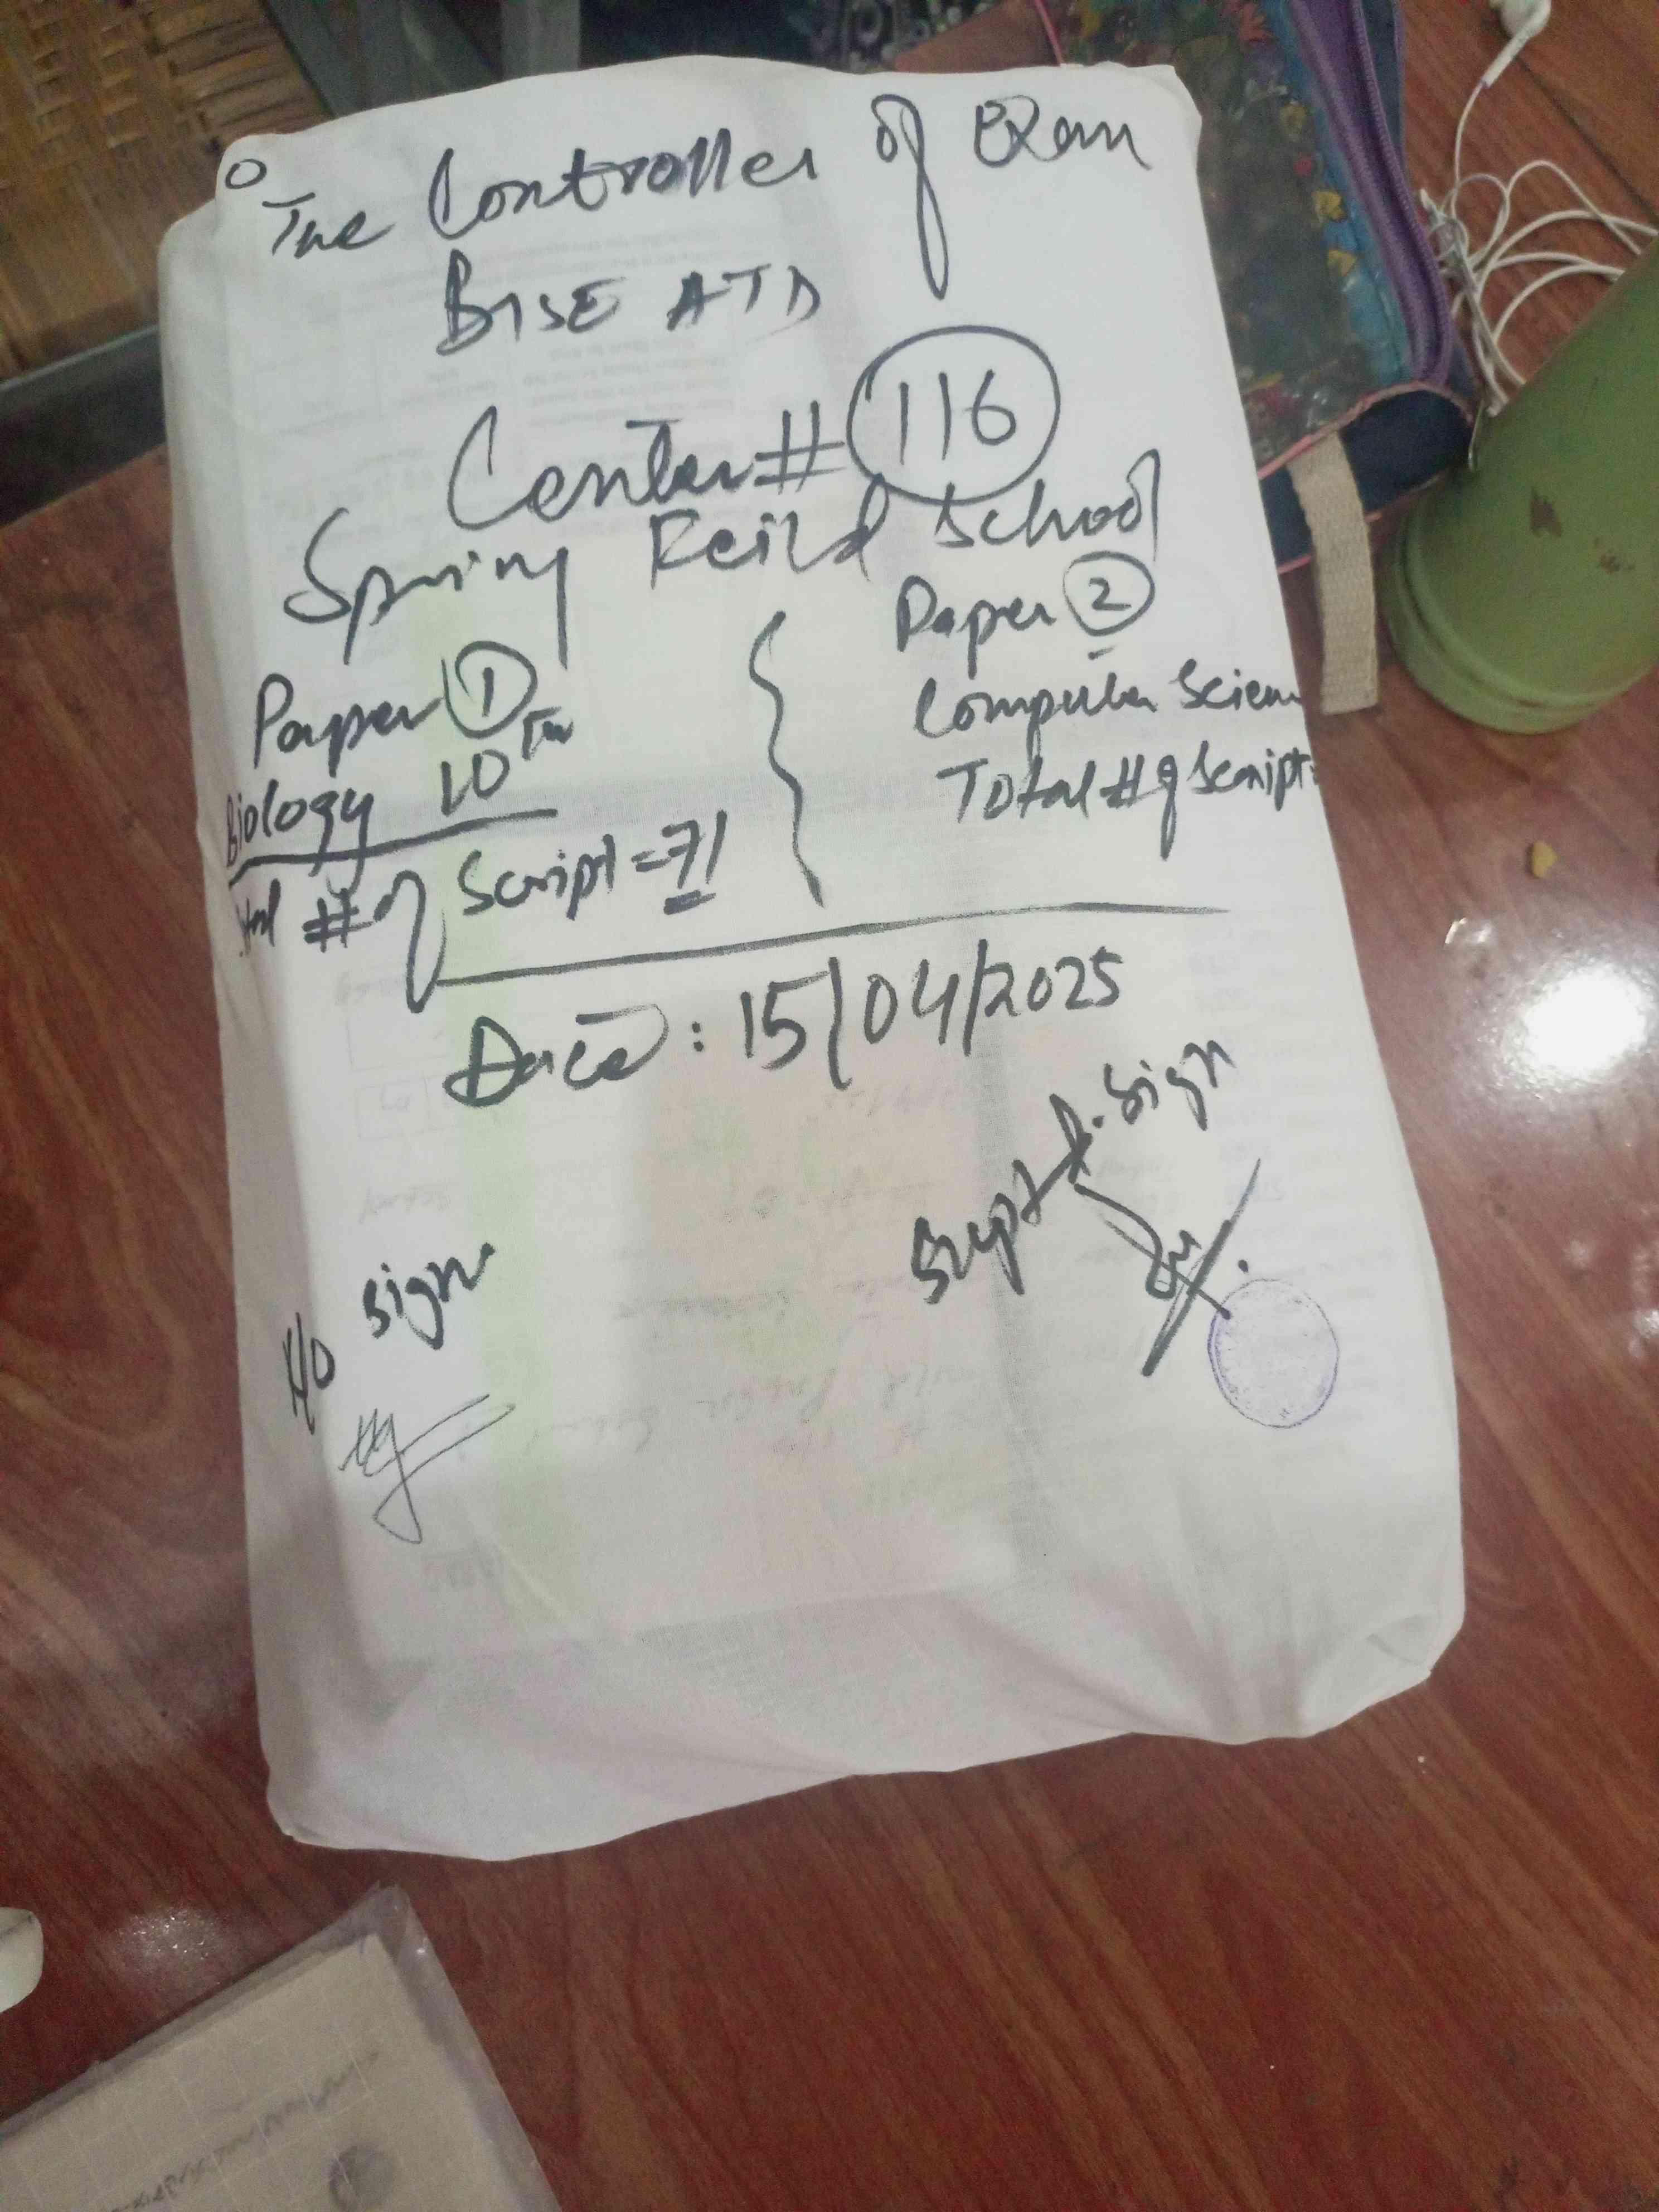 The Controller of Exam
BISE ATD
Center # 116
Spring Feild School
Paper 1
Biology 10th
# of Script = 71
Paper 2
Computer Scien
Total # of Script
Date: 15/04/2025
Supt. Sign
Sign